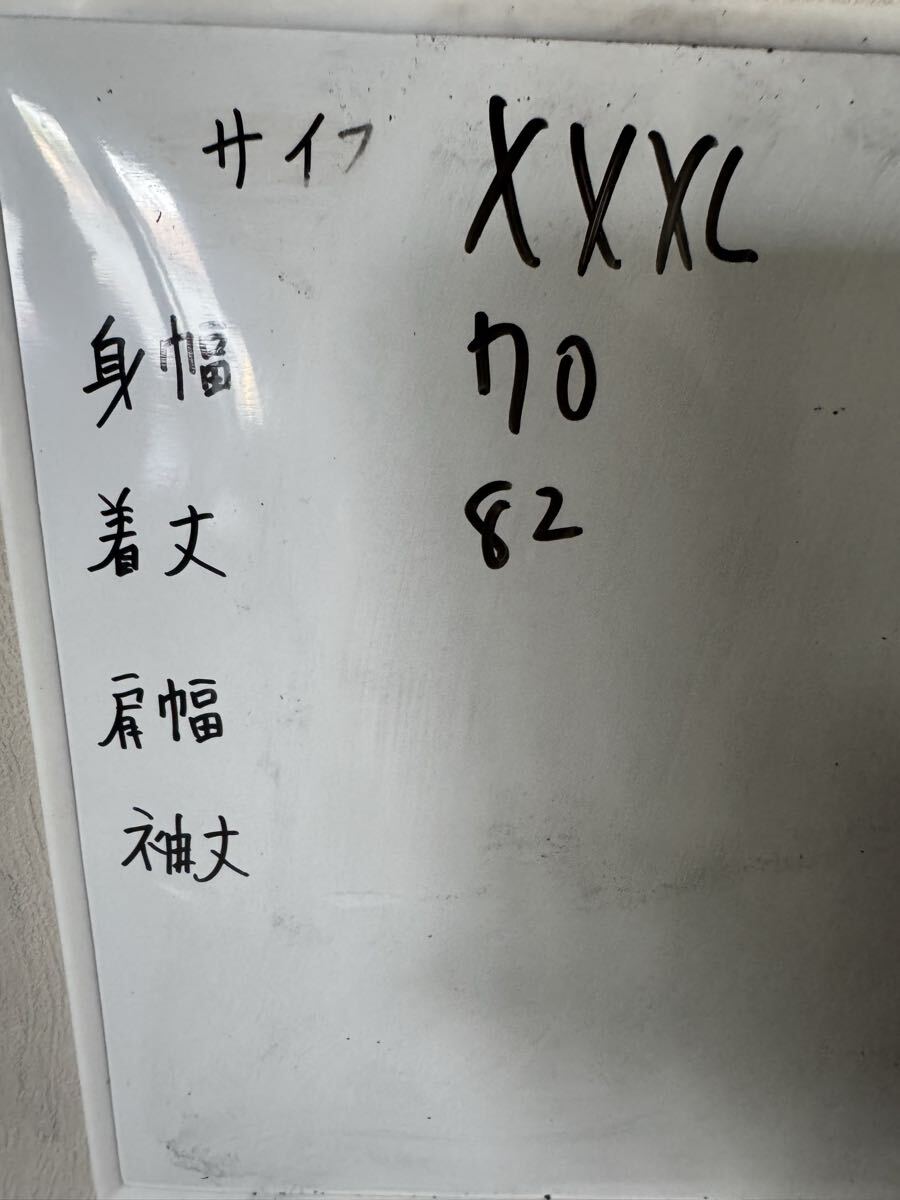 サイフ XXXL
身幅 70
着丈 82
肩幅
袖丈